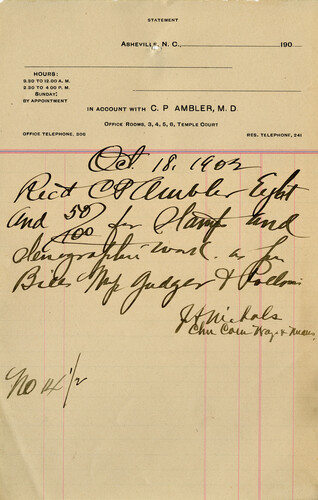 STATEMENT
ASHEVILLE, N. C., 190
HOURS:
9.30 TO 12.00 A. M.
2.30 TO 4.00 P. M.
SUNDAY:
BY APPOINTMENT
IN ACCOUNT WITH C. P. AMBLER, M. D.
OFFICE ROOMS, 3, 4, 5, 6, TEMPLE COURT
OFFICE TELEPHONE, 206 RES. TELEPHONE, 241
Oct. 18, 1902
Rec'd C P Ambler Eight
and 50/100 for Stamps and
Stenographic work. as per
Bills Gudger &
J H Nichols
Chr Com Ways & Means
No 14 1/2